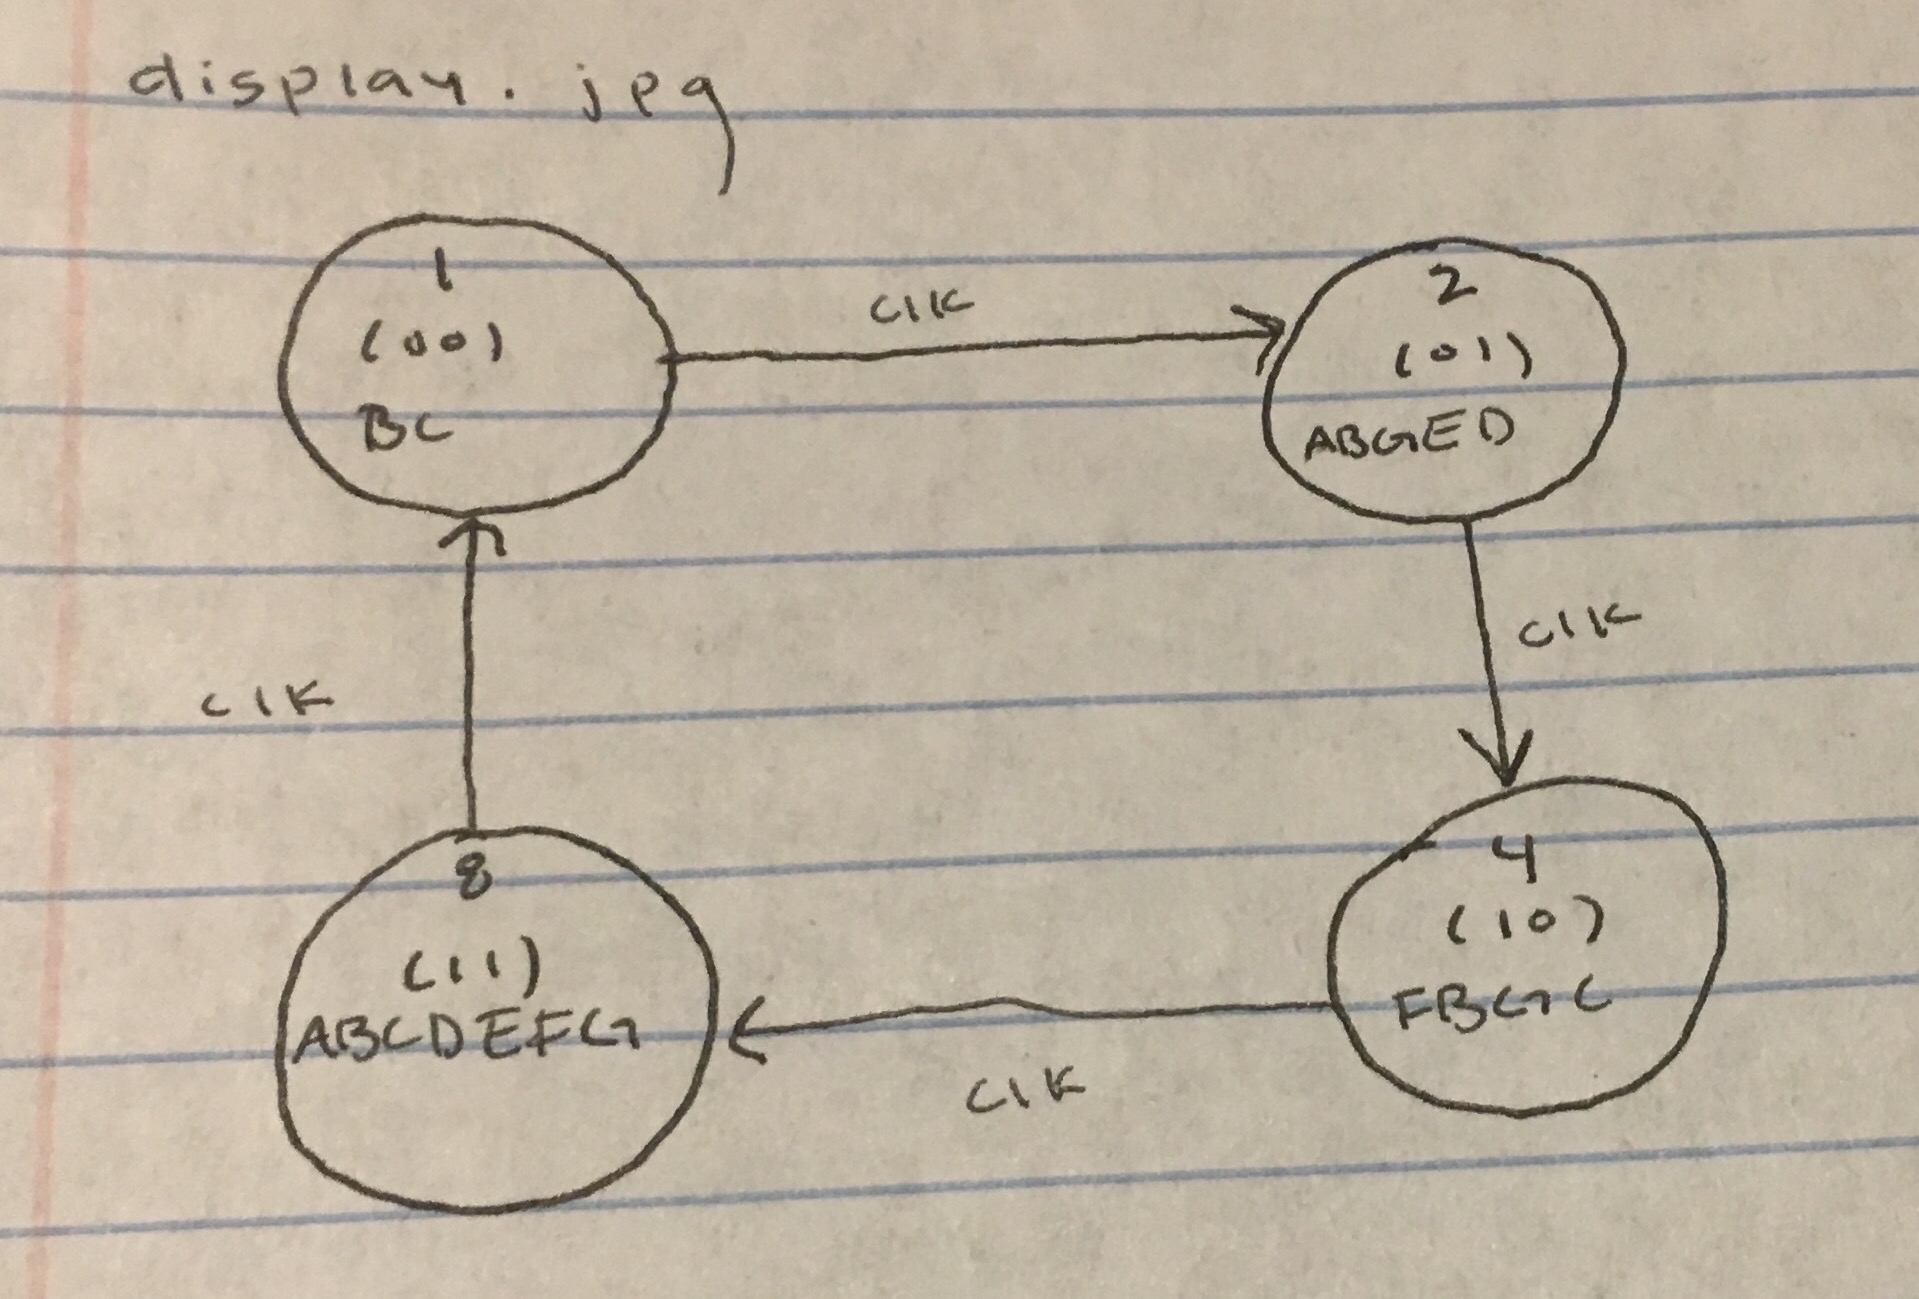 display.jpg
1
(00)
BC
clk
2
(01)
ABGED
clk
4
(10)
FBGC
clk
8
(11)
ABCDEFG
clk